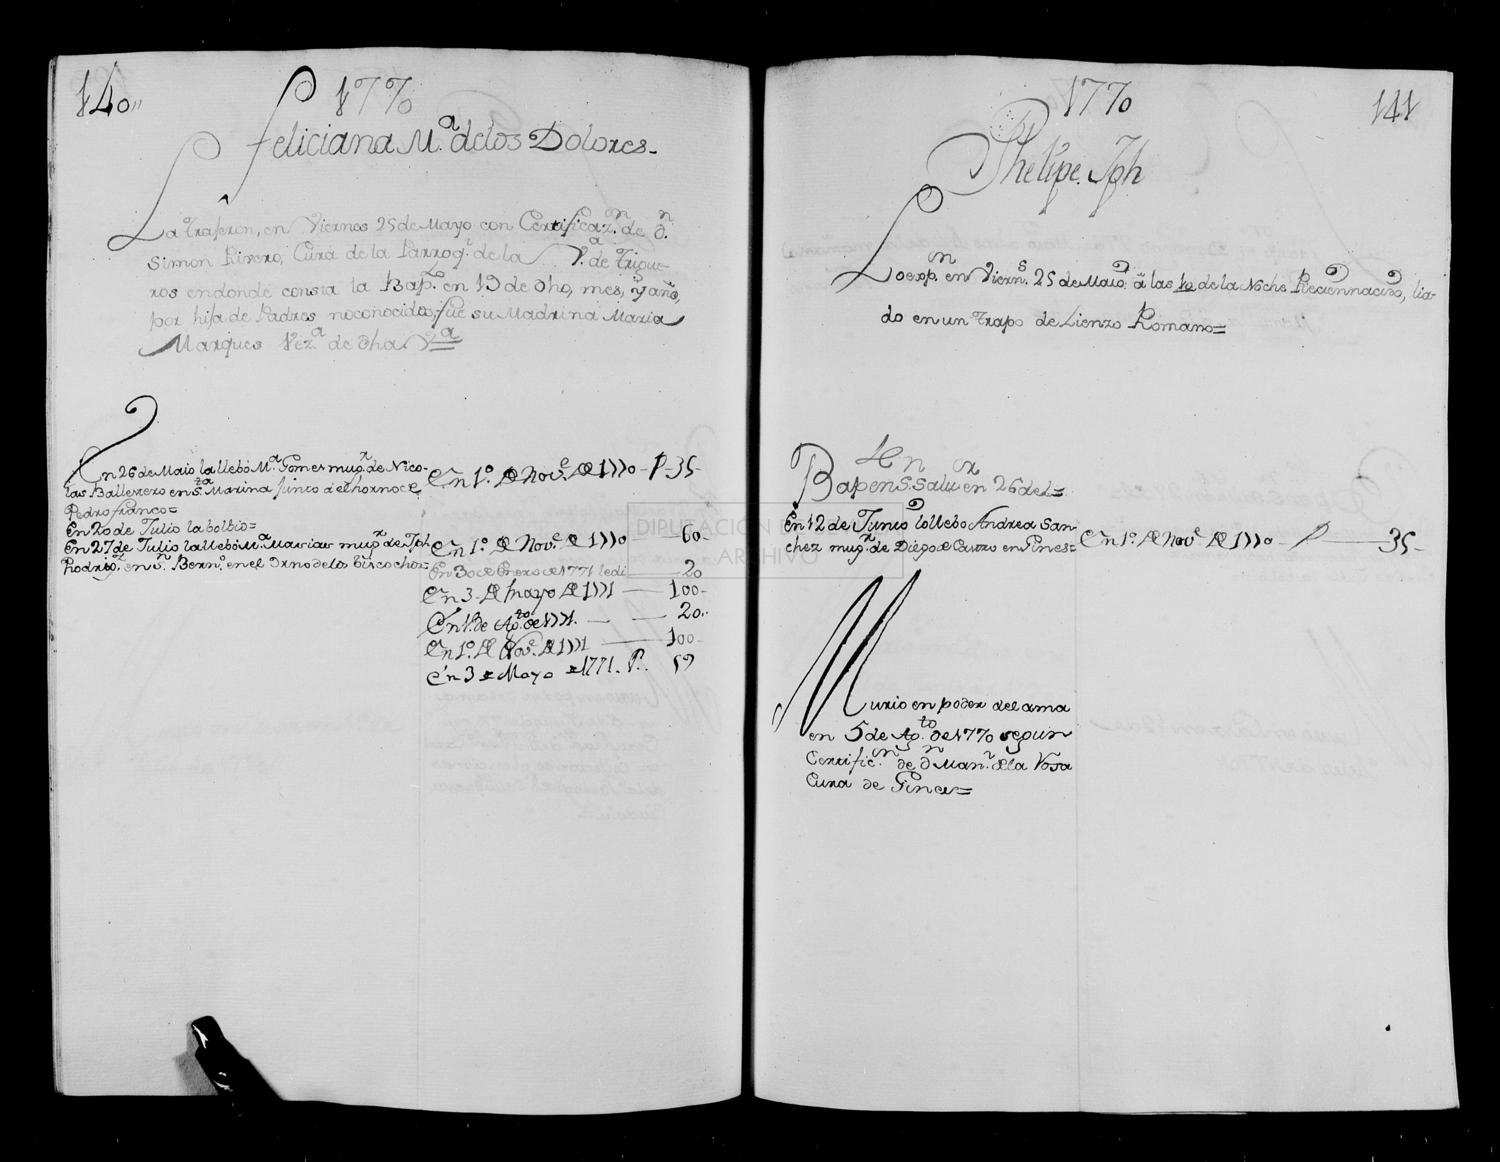 140,,
1770
Feliciana M.ª delos Dolores-
La trageron, en Viernes 25 de Mayo con Certificaz.n de D.n
Simon Rivero, Cura de la Parroq.l de la V.ª de Trigue-
ros endonde consta la Bap.n en 19 de dho, mes, y año,
por hija de Padres noconocidos, fue su Madrina Maria
Marques Vez.ª de dha V.ª
En 26 de Maio la llebó M.ª Gomes mug.r de Nico-
las Ballerero en S.ta Marina junto del horno de
Pedro franco=
En 20 de Julio la bolbio=
En 27 de Julio la llebó M.ª Macias mug.r de Jph
Rodrig.z en S.n Bern.o en el Orno de la biscocha=
En 1.º de Nov.e de 1770 - P - 35-
En 1.º de Nov.e de 1770 60-
En 30 de Enero de 1771 le di 20
En 3 de Mayo de 1771 100-
En 1.º de Ag.to de 1771. 20..
En 1.º de Nov.e de 1771 100-
En 3 de Mayo de 1771. P.. 59
1770
141
Phelipe Jph
Lo exp.n en Viern.s 25 de Maio à las 10 de la Noche Reciennacido, lia-
do en un trapo de Lienzo Romano=
Bap.n en S. Salv.or en 26 de
En 12 de Junio lo llebo Andrea San-
chez mug.r de Diego de Castro en Gines=
En 1.º de Nov.e de 1770 - P 35-
Murio en poder del ama
en 5 de Ag.to de 1770 segun
Certific.n de D.n Man.l de la Rosa
Cura de Gines=
DIPUTACION DE SEVILLA
ARCHIVO